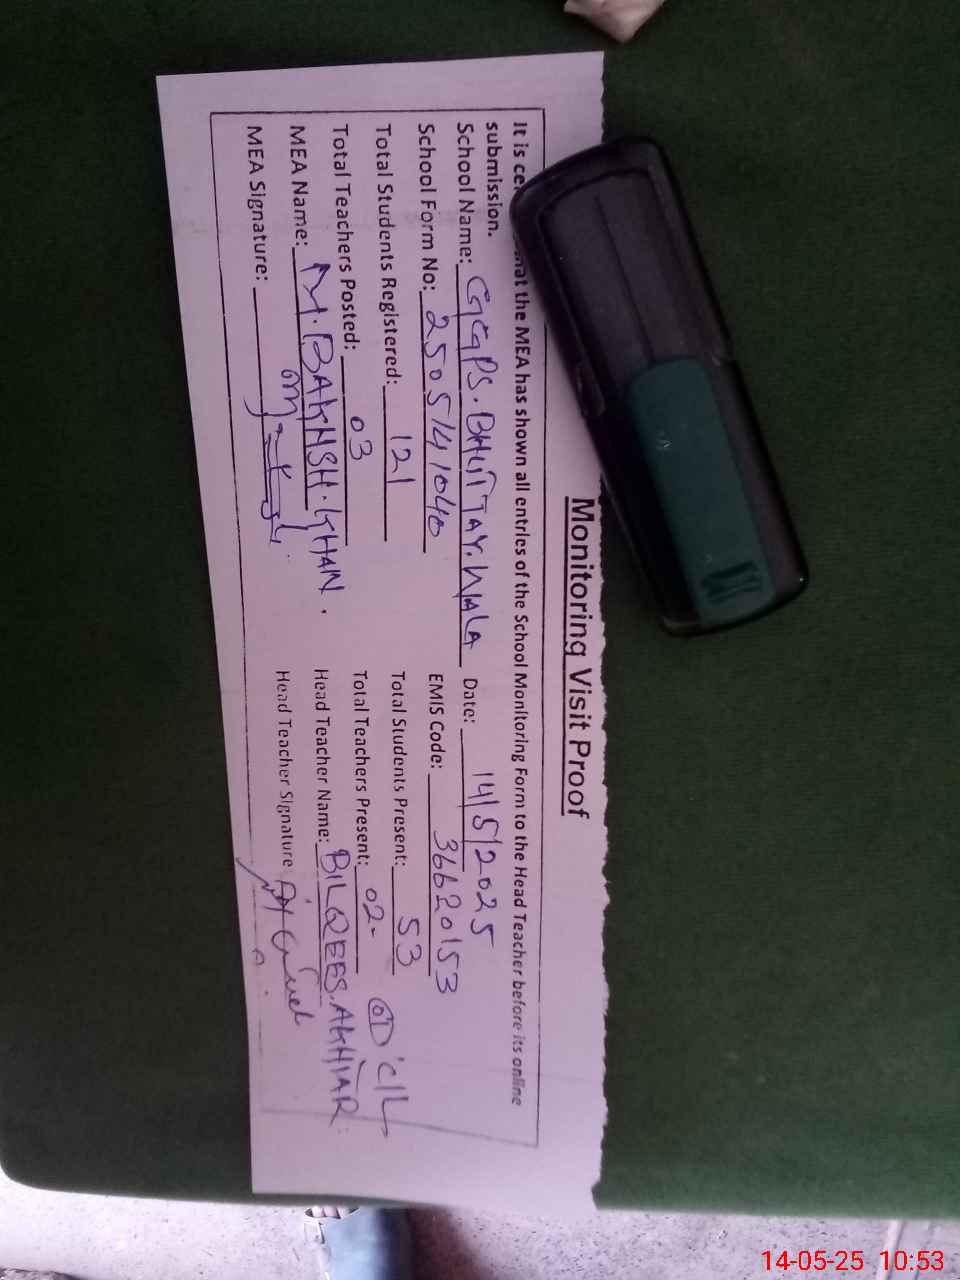 Monitoring Visit Proof
It is hat the MEA has shown all entries of the School Monitoring Form to the Head Teacher before its online
submission.
School Name: GGPS. BHUTTAY. WALA Date: 14/5/2025
School Form No: 2505141040 EMIS Code: 36620153
Total Students Registered: 121 Total Students Present: 53
Total Teachers Posted: 03 Total Teachers Present: 02-
MEA Name: M. BAKHSH. KHAN. Head Teacher Name: BILQEES. AKHTAR.
MEA Signature: Head Teacher Signature
14-05-25 10:53